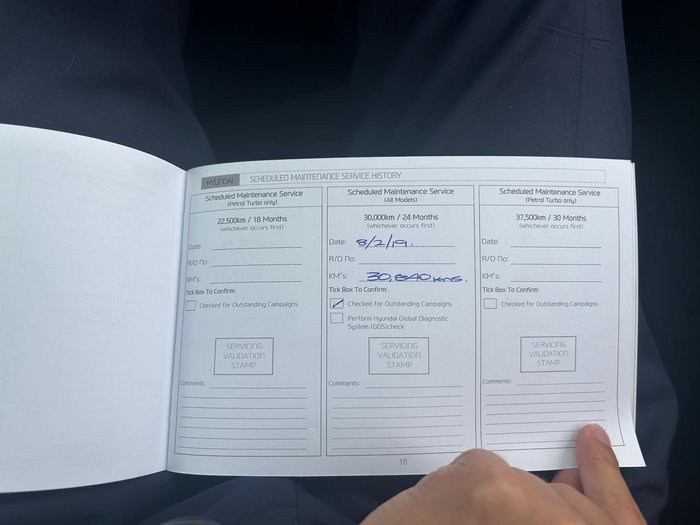 HYUNDAI SCHEDULED MAINTENANCE SERVICE HISTORY
Scheduled Maintenance Service
(Petrol Turbo only)
22,500km / 18 Months
(whichever occurs first)
Date:
R/O No:
KM's:
Tick Box To Confirm:
Checked for Outstanding Campaigns
SERVICING
VALIDATION
STAMP
Comments:
Scheduled Maintenance Service
(All Models)
30,000km / 24 Months
(whichever occurs first)
Date: 8/2/19.
R/O No:
KM's: 30,840 kms.
Tick Box To Confirm:
Checked for Outstanding Campaigns
Perform Hyundai Global Diagnostic
System (GDS)check
SERVICING
VALIDATION
STAMP
Comments:
Scheduled Maintenance Service
(Petrol Turbo only)
37,500km / 30 Months
(whichever occurs first)
Date:
R/O No:
KM's:
Tick Box To Confirm:
Checked for Outstanding Campaigns
SERVICING
VALIDATION
STAMP
Comments:
16